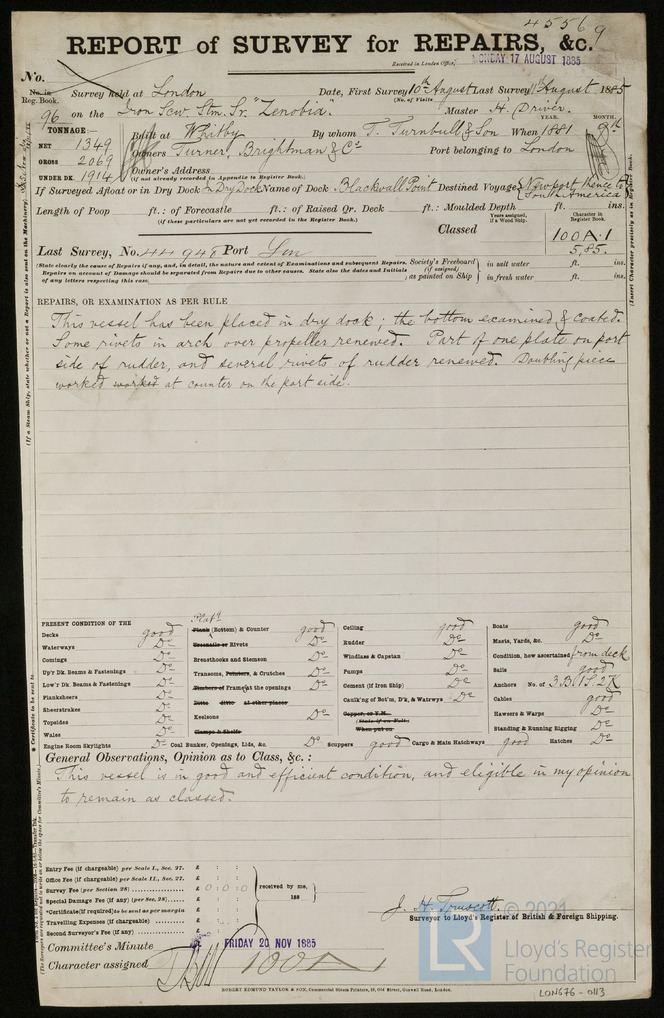 45569
REPORT of SURVEY for REPAIRS, &c.
Received in London Office, MONDAY 17 AUGUST 1885
No.
No. in Reg. Book. Survey held at London Date, First Survey 10th August Last Survey 11th August 1885
(No. of Visits
96 on the Iron Scw. Stm. Sr. "Zenobia". Master H. Driver.
TONNAGE:
NET 1349
GROSS 2069
UNDER DK. 1914
YEAR. MONTH.
Built at Whitby By whom T. Turnbull & Son When 1881
Owners Turner, Brightman & Co Port belonging to London
Owner's Address
(if not already recorded in Appendix to Register Book.)
If Surveyed Afloat or in Dry Dock In Dry Dock Name of Dock Blackwall Point Destined Voyage Newport thence to South America
Length of Poop ft.: of Forecastle ft.: of Raised Qr. Deck ft.: Moulded Depth ft. ins.
(if these particulars are not yet recorded in the Register Book.)
Years assigned, if a Wood Ship.
Character in Register Book.
Classed 100A.1
5,85.
Last Survey, No. 44948 Port Lon
(State clearly the cause of Repairs if any, and, in detail, the nature and extent of Examinations and subsequent Repairs.
Repairs on account of Damage should be separated from Repairs due to other causes. State also the dates and Initials
of any letters respecting this case.
Society's Freeboard (if assigned) as painted on Ship
in salt water ft. ins.
in fresh water ft. ins.
REPAIRS, OR EXAMINATION AS PER RULE
This vessel has been placed in dry dock. the bottom examined & coated.
Some rivets in arch over propeller renewed. Part of one plate on port
side of rudder, and several rivets of rudder renewed. Doubling piece
worked worked at counter on the port side.
PRESENT CONDITION OF THE
Decks good
Waterways Do
Comings Do
Up'r Dk. Beams & Fastenings Do
Low'r Dk. Beams & Fastenings Do
Planksheers Do
Sheerstrakes Do
Topsides Do
Wales Do
Engine Room Skylights Do
Plat'g
Plank (Bottom) & Counter good
Treenails or Rivets Do
Breasthooks and Stemson Do
Transoms, Pointers, & Crutches Do
Timbers of Frame at the openings Do
Ditto ditto at other places
Keelsons Do
Clamps & Shelfs
Coal Bunker, Openings, Lids, &c. Do
Ceiling good
Rudder Do
Windlass & Capstan Do
Pumps Do
Cement (if Iron Ship) Do
Caulk'ng of Bot'm, D'k, & Watrwys Do
Copper, or Y.M.
(State if on Felt)
When put on
Scuppers good Cargo & Main Hatchways good Hatches Do
Boats good
Masts, Yards, &c. Do
Condition, how ascertained from deck
Sails good
Anchors No. of 3B 1S 2K
Cables good
Hawsers & Warps Do
Standing & Running Rigging Do
General Observations, Opinion as to Class, &c.:
This vessel is in good and efficient condition, and eligible in my opinion
to remain as classed.
Entry Fee (if chargeable) per Scale I., Sec. 27. £ : :
Office Fee (if chargeable) per Scale II., Sec. 27. £ : :
Survey Fee (per Section 28) £ 0 : 0 : 0
Special Damage Fee (if any) (per Sec. 28) £ : :
*Certificate (if required) to be sent as per margin £ : :
Travelling Expenses (if chargeable) £ : :
Second Surveyor's Fee (if any) £ : :
received by me,
188
J. H. Truscott.
Surveyor to Lloyd's Register of British & Foreign Shipping.
Committee's Minute FRIDAY 20 NOV 1885
Character assigned 100A1
ROBERT EDMUND TAYLOR & SON, Commercial Steam Printers, 19, Old Street, Goswell Road, London.
© 2021
LR
Lloyd's Register
Foundation
LON676-0113